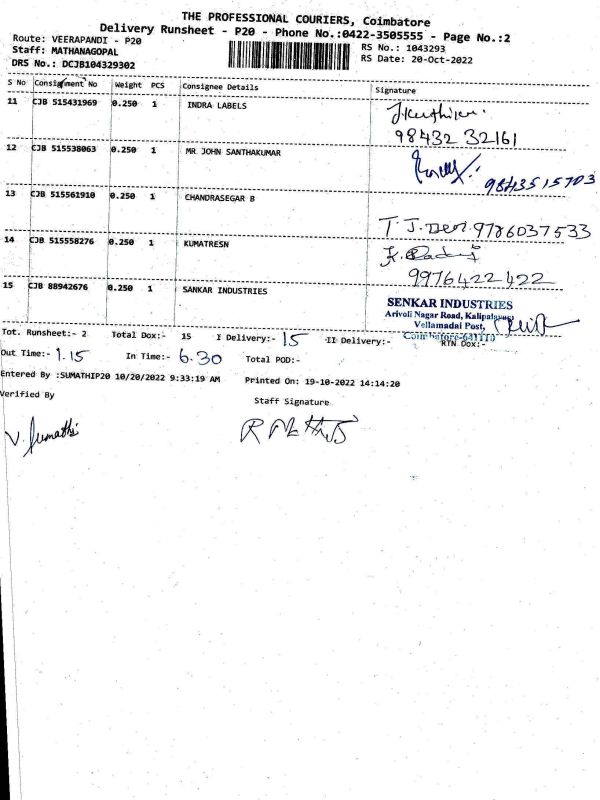 THE PROFESSIONAL COURIERS, Coimbatore
Delivery Runsheet - P20 - Phone No.:0422-3505555 - Page No.:2
Route: VEERAPANDI - P20 RS No.: 1043293
Staff: MATHANAGOPAL RS Date: 20-Oct-2022
DRS No.: DCJB104329302
S No Consignment No Weight PCS Consignee Details Signature
11 CJB 515431969 0.250 1 INDRA LABELS
98432 32161
12 CJB 515538063 0.250 1 MR JOHN SANTHAKUMAR
9843515703
13 CJB 515561910 0.250 1 CHANDRASEGAR B
T. J. Devi 9786037533
14 CJB 515558276 0.250 1 KUMATRESN
9976422422
15 CJB 88942676 0.250 1 SANKAR INDUSTRIES
SENKAR INDUSTRIES
Arivoli Nagar Road, Kalipalayam
Vellamadai Post,
Coimbatore-641110
Tot. Runsheet:- 2 Total Dox:- 15 I Delivery:- 15 II Delivery:- RTN Dox:-
Out Time:- 1.15 In Time:- 6.30 Total POD:-
Entered By :SUMATHIP20 10/20/2022 9:33:19 AM Printed On: 19-10-2022 14:14:20
Verified By Staff Signature
V. Sumathi